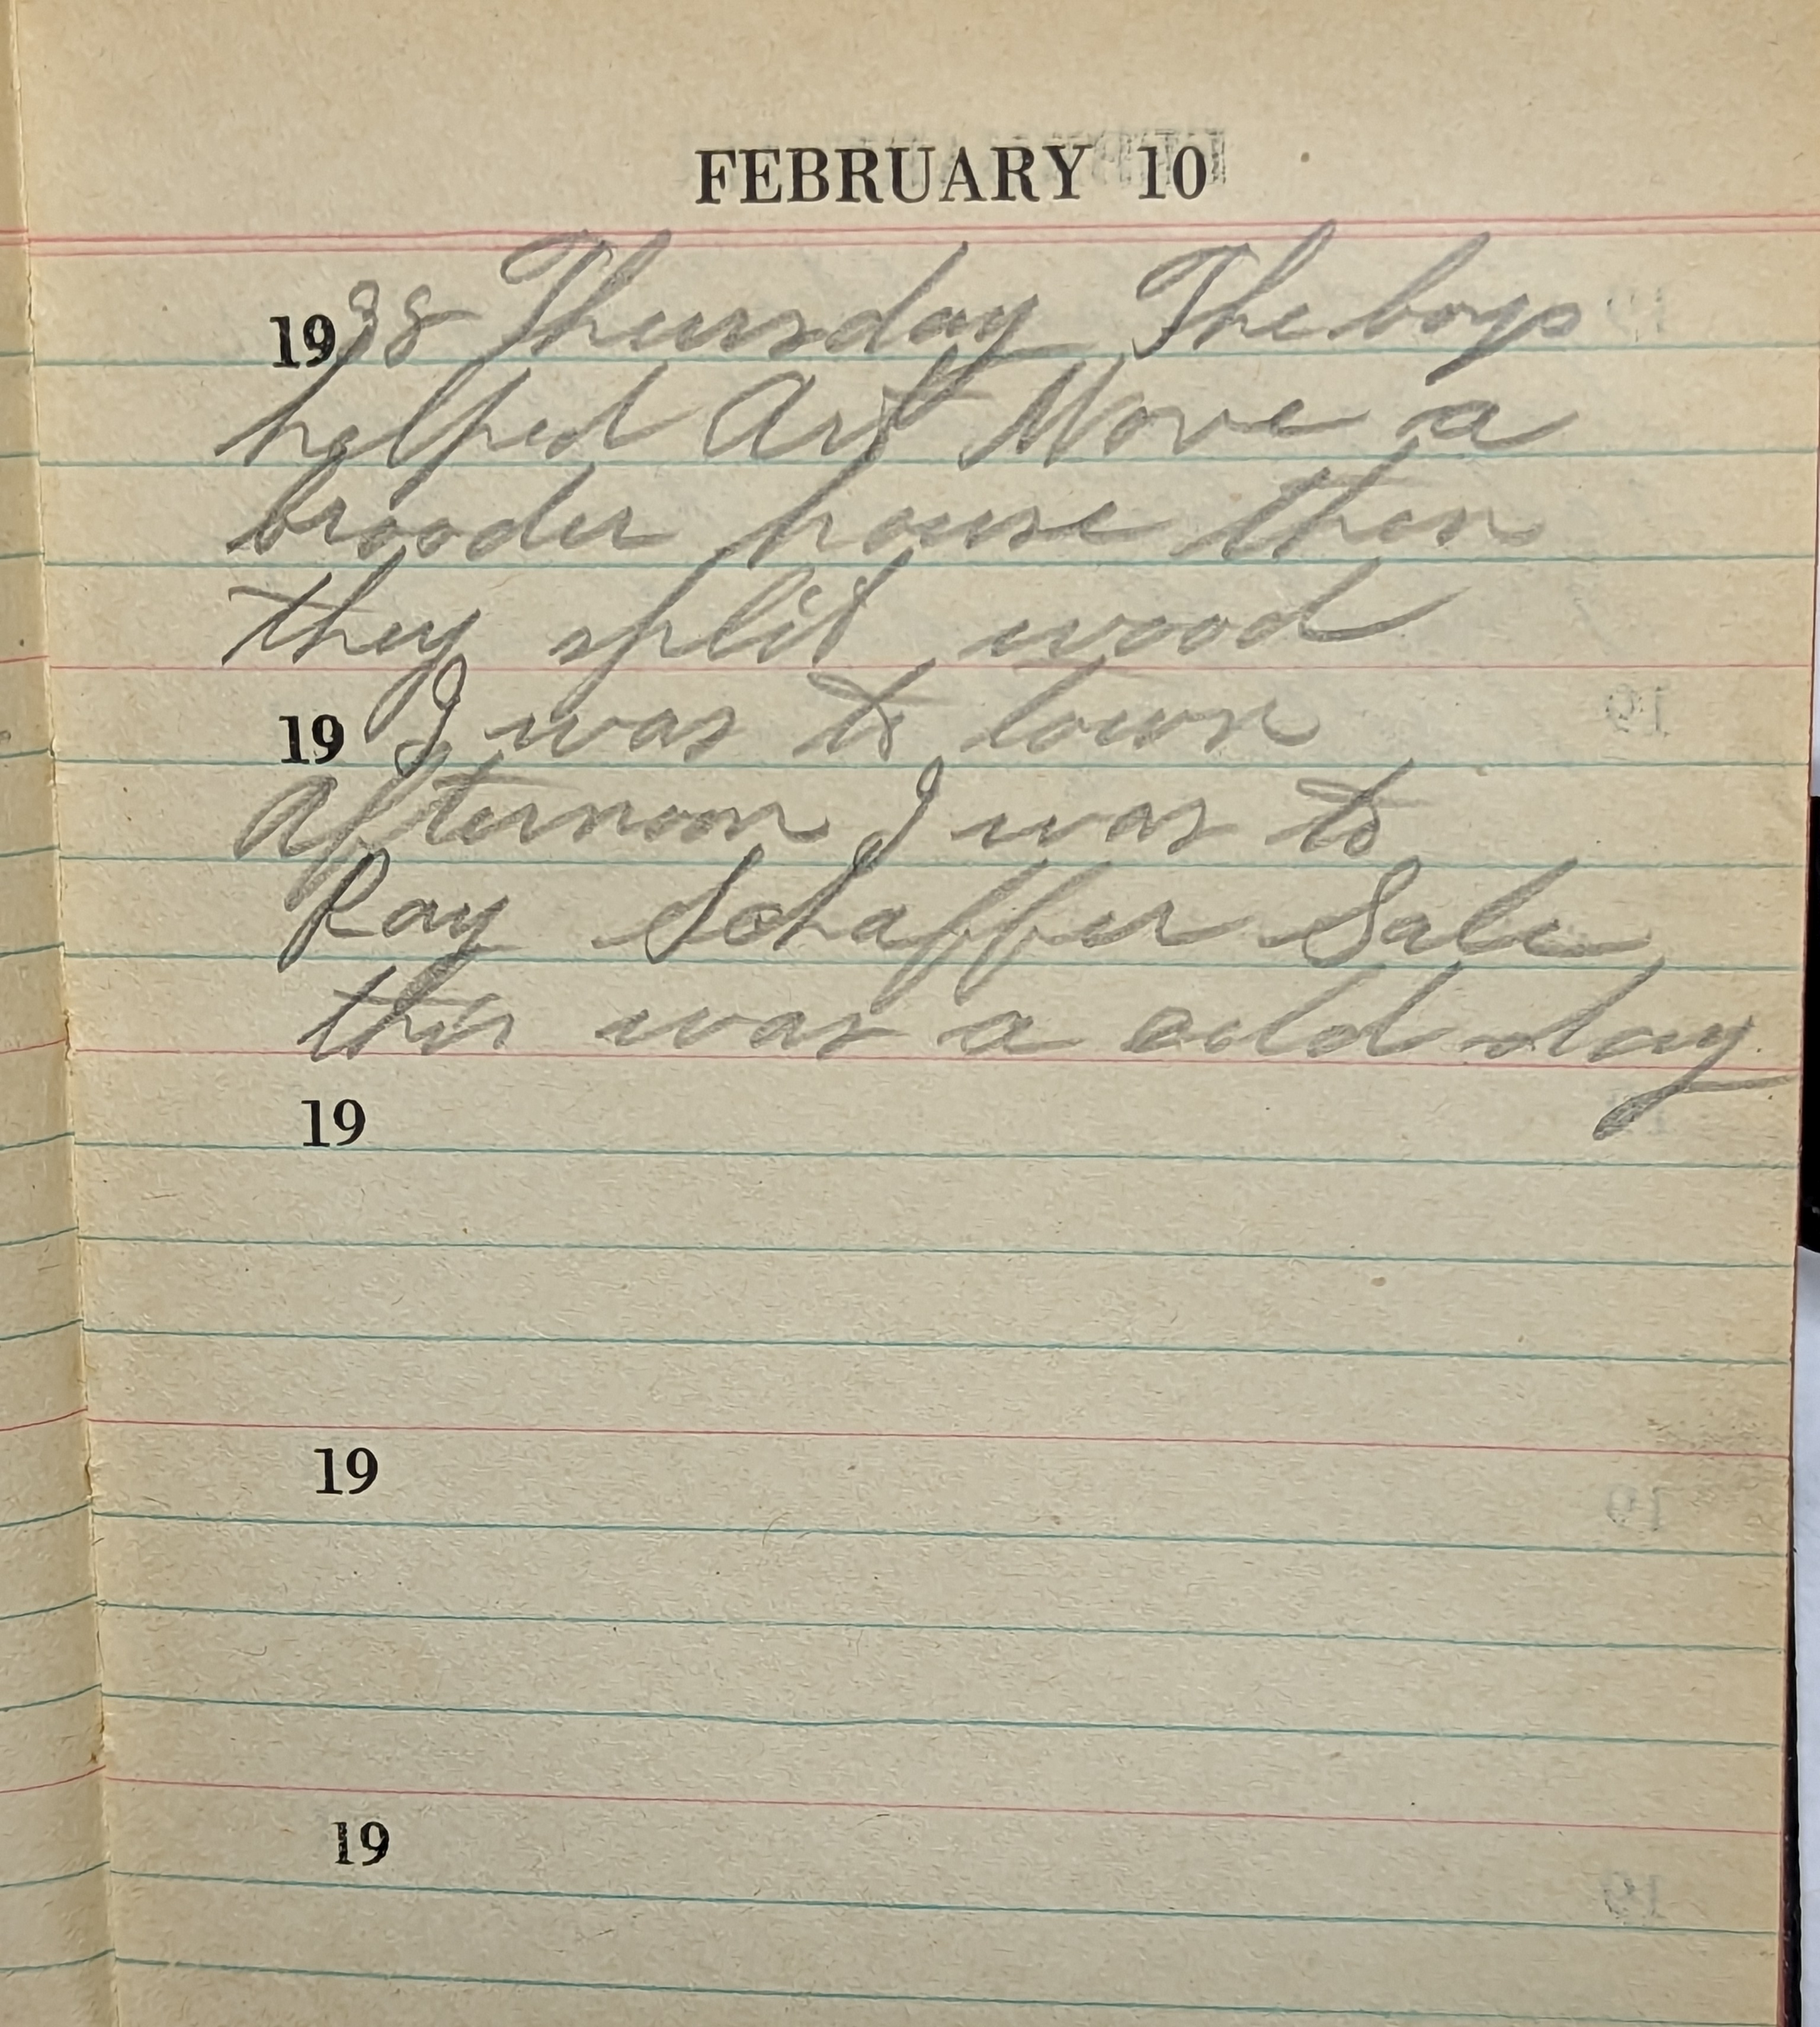 FEBRUARY 10
1938 Thursday The boys
helped Art Move a
brooder house then
they split wood
19 I was to town
afternoon I was to
Ray Schaffer Sale
this was a cold day
19
19
19